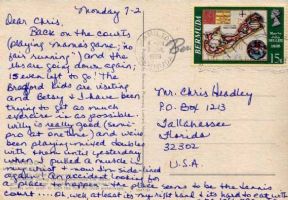 Monday 9-2
Dear Chris,
Back on the courts
(playing mama's game; no
fair running) and the
lbs are going down again;
15 even left to go! The
Bradford kids are visiting
and Betsy & I have been
trying to get as much
exercise in as possible.
Willy is really good (semi-
pro at one time) and we've
been playing mixed doubles
with them until yesterday
when I pulled a muscle in
my wrist & now I'm side-lined
again! An accident looking for
a place to happen & the place seems to be the tennis
court.... Oh well at least it's my right hand & it's hard to eat with
BERMUDA
15c
Mr. Chris Headley
P.O. Box 1213
Tallahassee
Florida
32302
U.S.A.